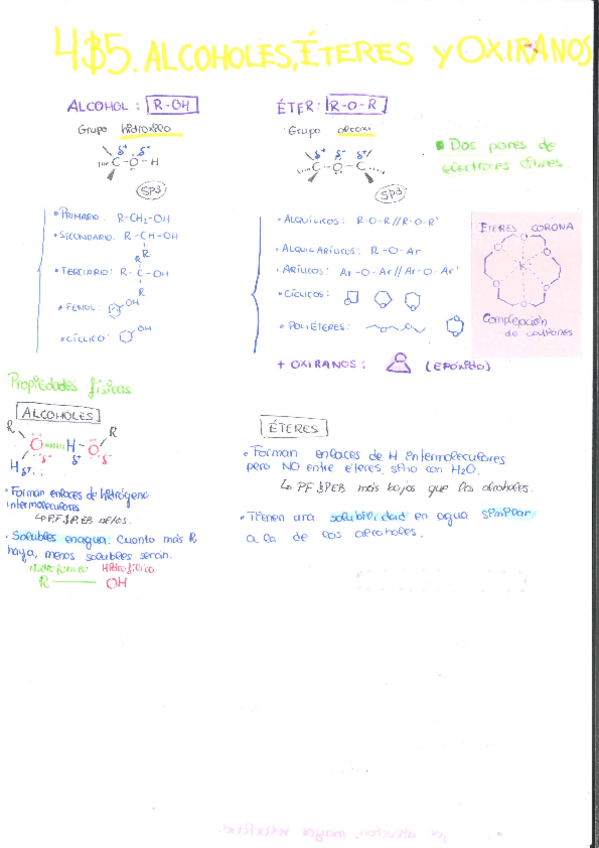 4$5. ALCOHOLES, ÉTERES Y OXIRANOS
ALCOHOL: R-OH
Grupo hidroxilo
δ+ δ-
C-O-H
SP3
• PRIMARIO: R-CH2-OH
• SECUNDARIO: R-CH-OH
R
• TERCIARIO: R-C-OH
R
R
• FENOL: OH
• CÍCLICO: OH
ÉTER: R-O-R
Grupo alcoxi
δ+ δ- δ+
C-O-C
SP3
• ALQUÍLICOS: R-O-R//R-O-R'
• ALQUILARÍLICOS: R-O-Ar
• ARÍLICOS: Ar-O-Ar//Ar-O-Ar'
• CÍCLICOS:
• POLIÉTERES:
+ OXIRANOS: (EPÓXIDO)
Dos pares de
electrones libres.
ÉTERES CORONA
O O O O O O
K+
Complejación
de cationes
Propiedades físicas
ALCOHOLES
R R
O H-O
H δ- δ+ δ-
δ+
• Forman enlaces de hidrógeno
intermoleculares
↳ PF $ PEB altos.
• Solubles en agua: Cuanto más R
haya, menos solubles serán.
Hidrófobo Hidrofílico
R — OH
ÉTERES
• Forman enlaces de H intermoleculares
pero NO entre éteres, sino con H2O.
↳ PF $ PEB más bajos que los alcoholes.
• Tienen una solubilidad en agua similar
a la de los alcoholes.